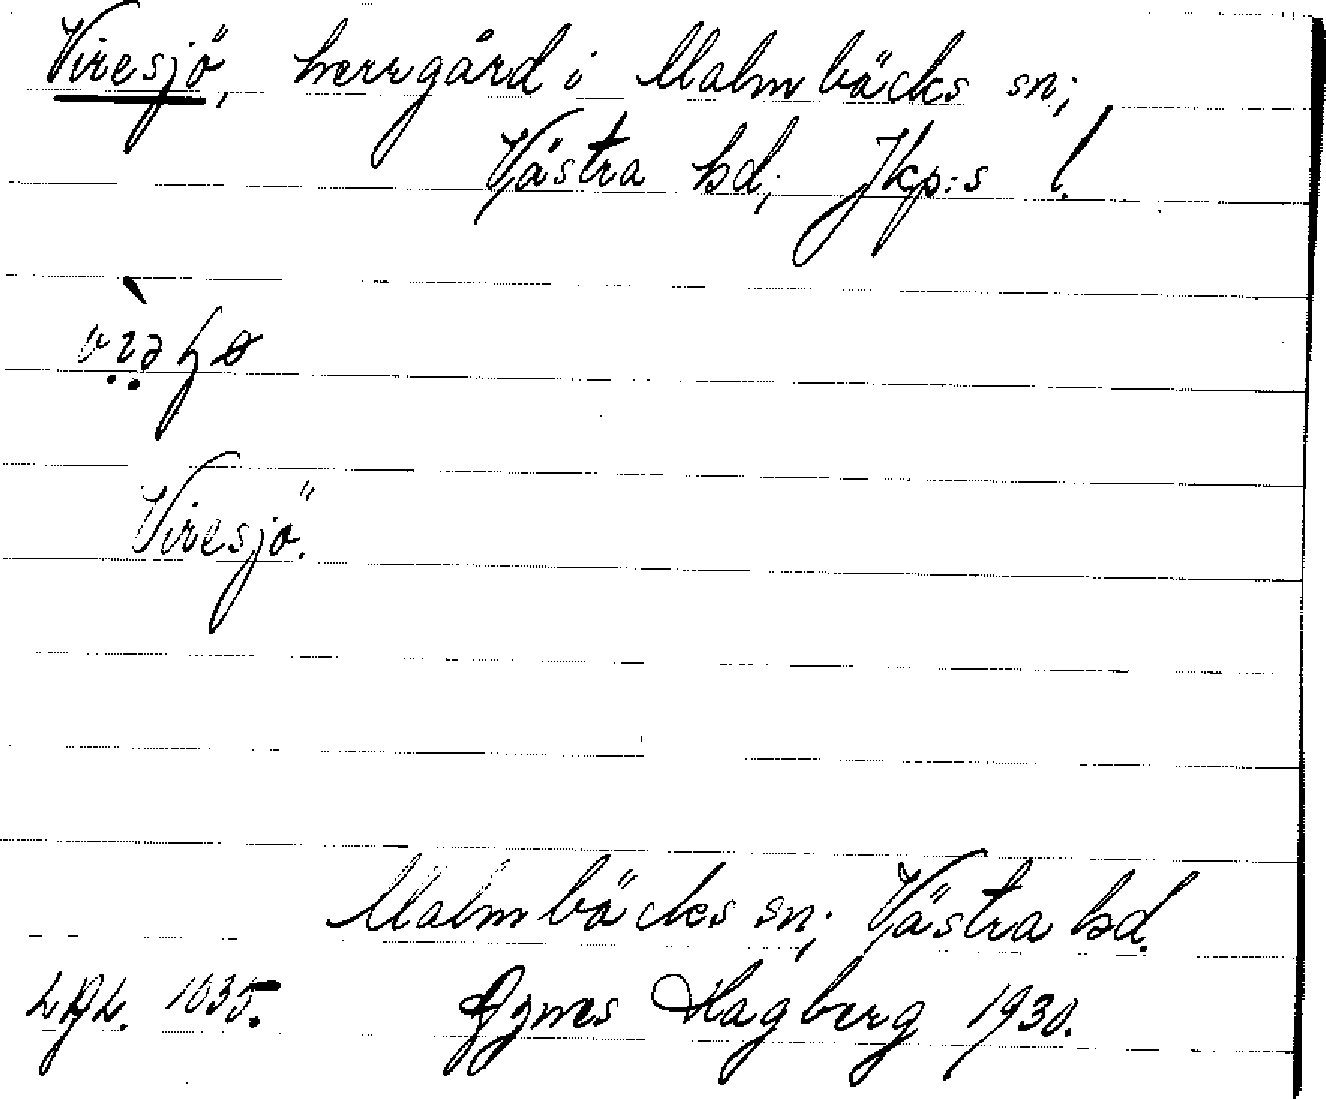 Viresjö, herrgård i Malmbäcks sn;
Västra hd; Jkp:s l.
Viresjö.
Malmbäcks sn; Västra hd.
1035. Agnes Hagberg 1930.